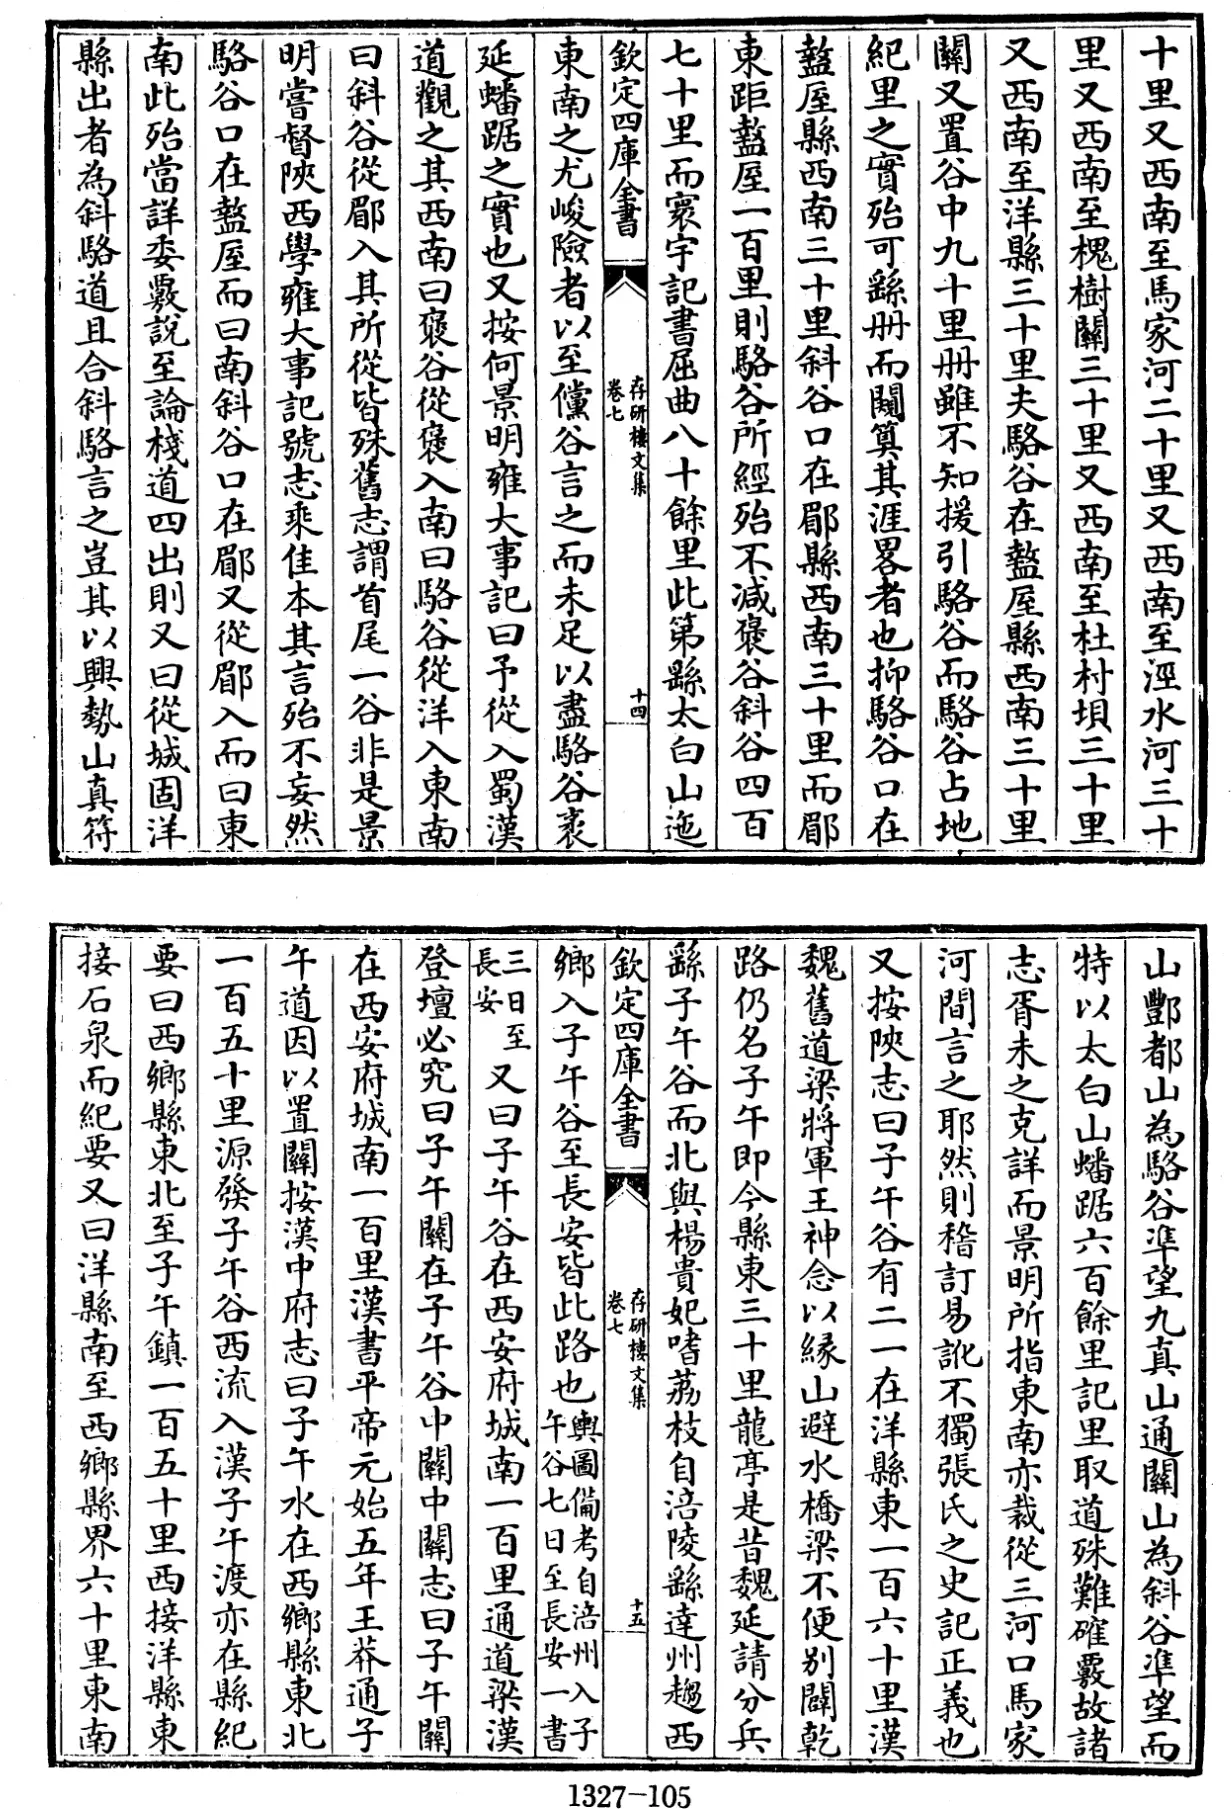 十里又西南至馬家河二十里又西南至溼水河三十
里又西南至槐樹關三十里又西南至杜村垻三十里
又西南至洋縣三十里夫駱谷在盩厔縣西南三十里
關又置谷中九十里冊雖不知援引駱谷而駱谷占地
紀里之實殆可繇冊而閱筭其涯畧者也抑駱谷口在
盩厔縣西南三十里斜谷口在郿縣西南三十里而郿
東距盩厔一百里則駱谷所經殆不減褒谷斜谷四百
七十里而寰宇記書屈曲八十餘里此第繇太白山迤
欽定四庫全書
存研樓文集
卷七
十四
東南之尤峻險者以至儻谷言之而未足以盡駱谷袤
延蟠踞之實也又按何景明雍大事記曰予從入蜀漢
道觀之其西南曰褒谷從褒入南曰駱谷從洋入東南
曰斜谷從郿入其所從皆殊舊志謂首尾一谷非是景
明嘗督陜西學雍大事記號志乘佳本其言殆不妄然
駱谷口在盩厔而曰南斜谷口在郿又從郿入而曰東
南此殆當詳委覈說至論棧道四出則又曰從城固洋
縣出者為斜駱道且合斜駱言之豈其以興勢山真符
山酆都山為駱谷凖望九真山通關山為斜谷凖望而
特以太白山蟠踞六百餘里記里取道殊難確覈故諸
志胥未之克詳而景明所指東南亦裁從三河口馬家
河間言之耶然則稽訂易訛不獨張氏之史記正義也
又按陜志曰子午谷有二一在洋縣東一百六十里漢
魏舊道梁將軍王神念以緣山避水橋梁不便別闢乾
路仍名子午即今縣東三十里龍亭是昔魏延請分兵
繇子午谷而北與楊貴妃嗜荔枝自涪陵繇達州趨西
欽定四庫全書
存研樓文集
卷七
十五
鄉入子午谷至長安皆此路也輿圖備考自涪州入子午谷七日至長安一書
三日至長安又曰子午谷在西安府城南一百里通道梁漢
登壇必究曰子午關在子午谷中關中關志曰子午關
在西安府城南一百里漢書平帝元始五年王莽通子
午道因以置關按漢中府志曰子午水在西鄉縣東北
一百五十里源發子午谷西流入漢子午渡亦在縣紀
要曰西鄉縣東北至子午鎮一百五十里西接洋縣東
接石泉而紀要又曰洋縣南至西鄉縣界六十里東南
1327-105